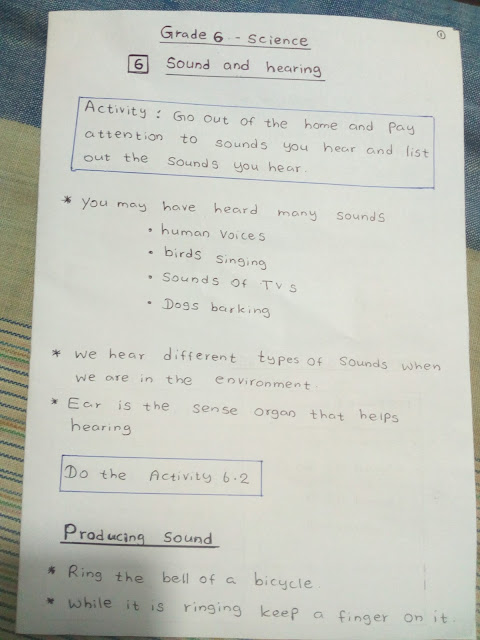 ①
Grade 6 - Science
6 Sound and hearing
Activity : Go out of the home and pay
attention to sounds you hear and list
out the sounds you hear.
* You may have heard many sounds
• human voices
• birds singing
• Sounds of TVs
• Dogs barking
* we hear different types of sounds when
we are in the environment.
* Ear is the sense organ that helps
hearing
Do the Activity 6.2
Producing Sound
* Ring the bell of a bicycle.
* While it is ringing keep a finger on it.